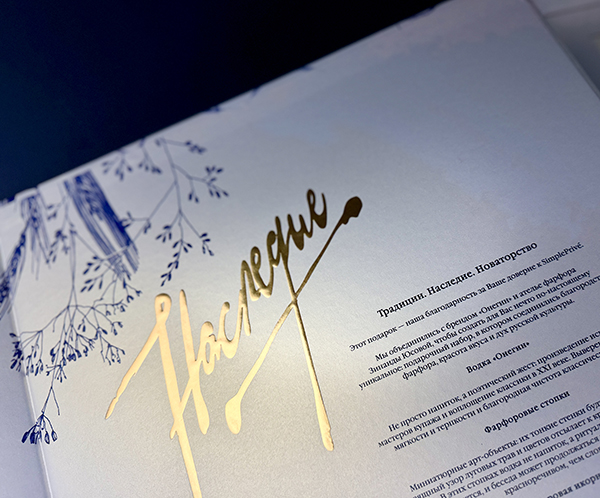 Наследие
Традиции. Наследие. Новаторство
Этот подарок — наша благодарность за Ваше доверие к SimplePrivé.
Мы объединились с брендом «Онегин» и ателье фарфора
Зинаиды Юсовой, чтобы создать для Вас нечто по-настоящему
уникальное: подарочный набор, в котором соединились благородст
фарфора, красота вкуса и дух русской культуры.
Водка «Онегин»
Не просто напиток, а поэтический жест: произведение иск
мастеров купажа и воплощение классики в XXI веке. Выверен
мягкости и терпкости и благородная чистота классичес
Фарфоровые стопки
Миниатюрные арт-объекты: их тонкие стенки буд
узор луговых трав и цветов отсылает к кр
В этих стопках водка не напиток, а ритуал
и беседа может продолжаться
красноречивом, чем слов
икорни